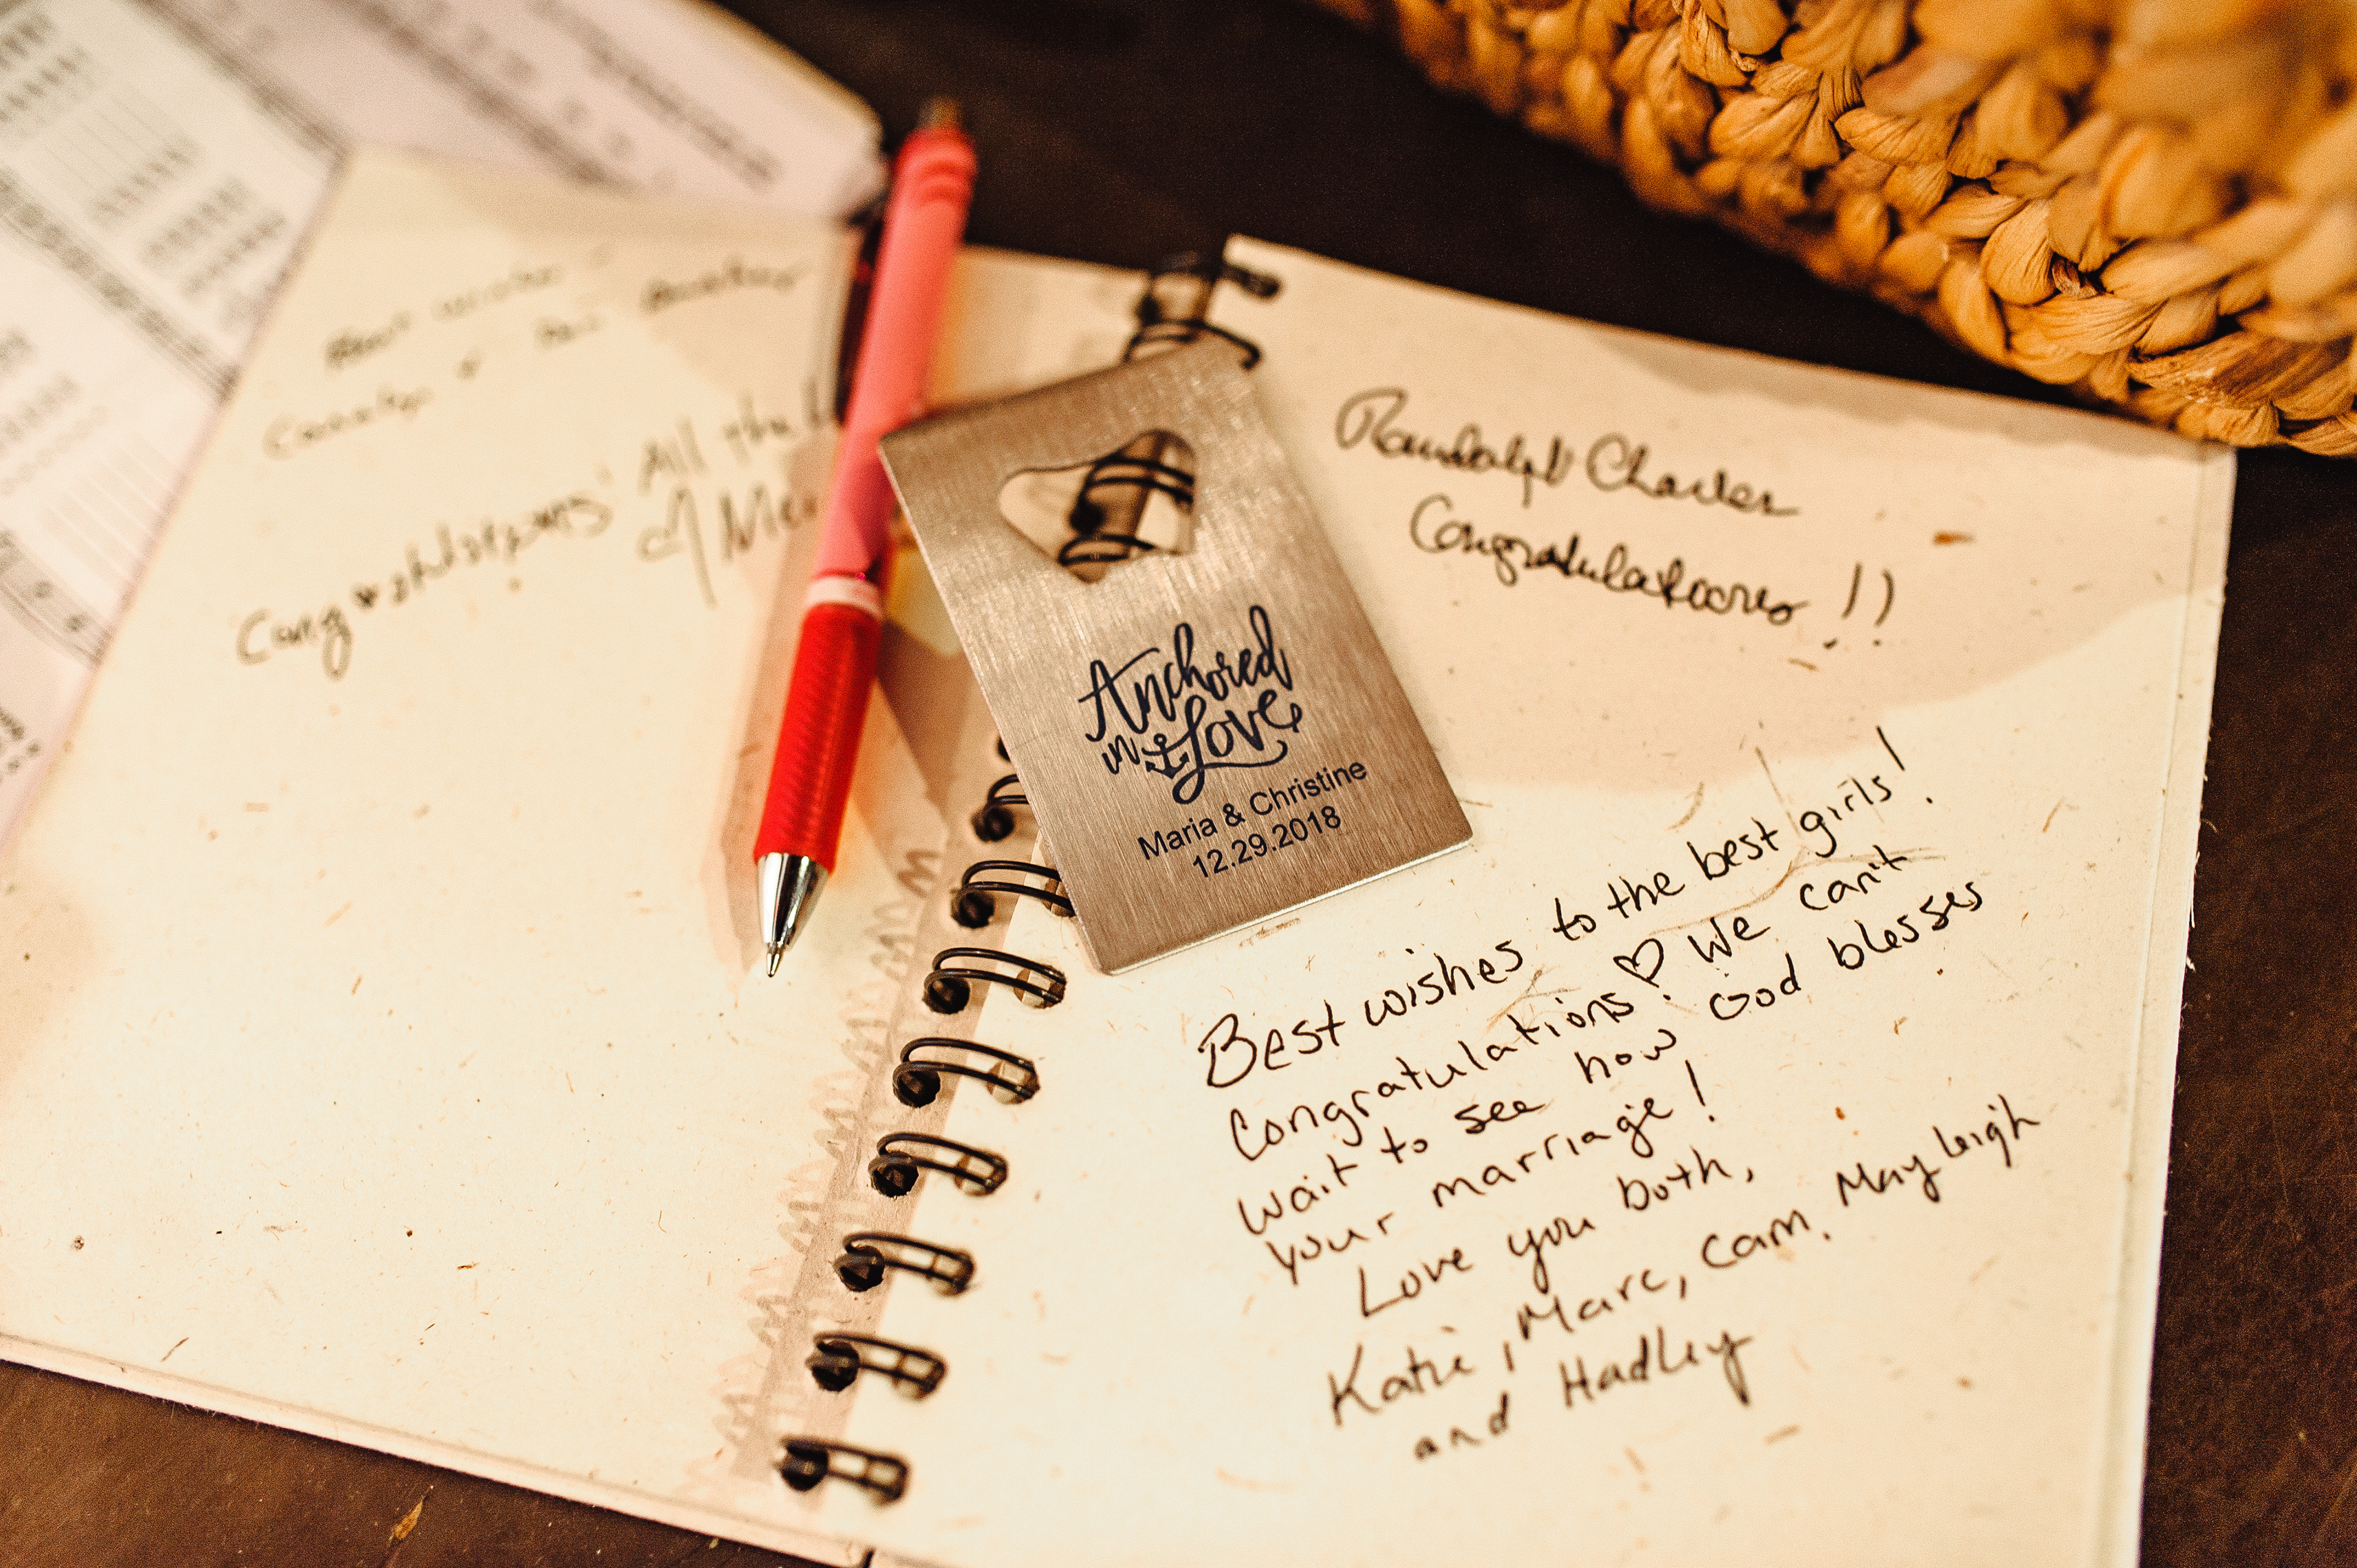 Best wishes
Congratulations! All the
Anchored
in Love
Maria & Christine
12.29.2018
Randolph Charles
Congratulations!!
Best wishes to the best girls!
Congratulations! ♡ We can't
wait to see how God blesses
your marriage!
Love you both,
Katie, Marc, Cam, Mayleigh
and Hadley